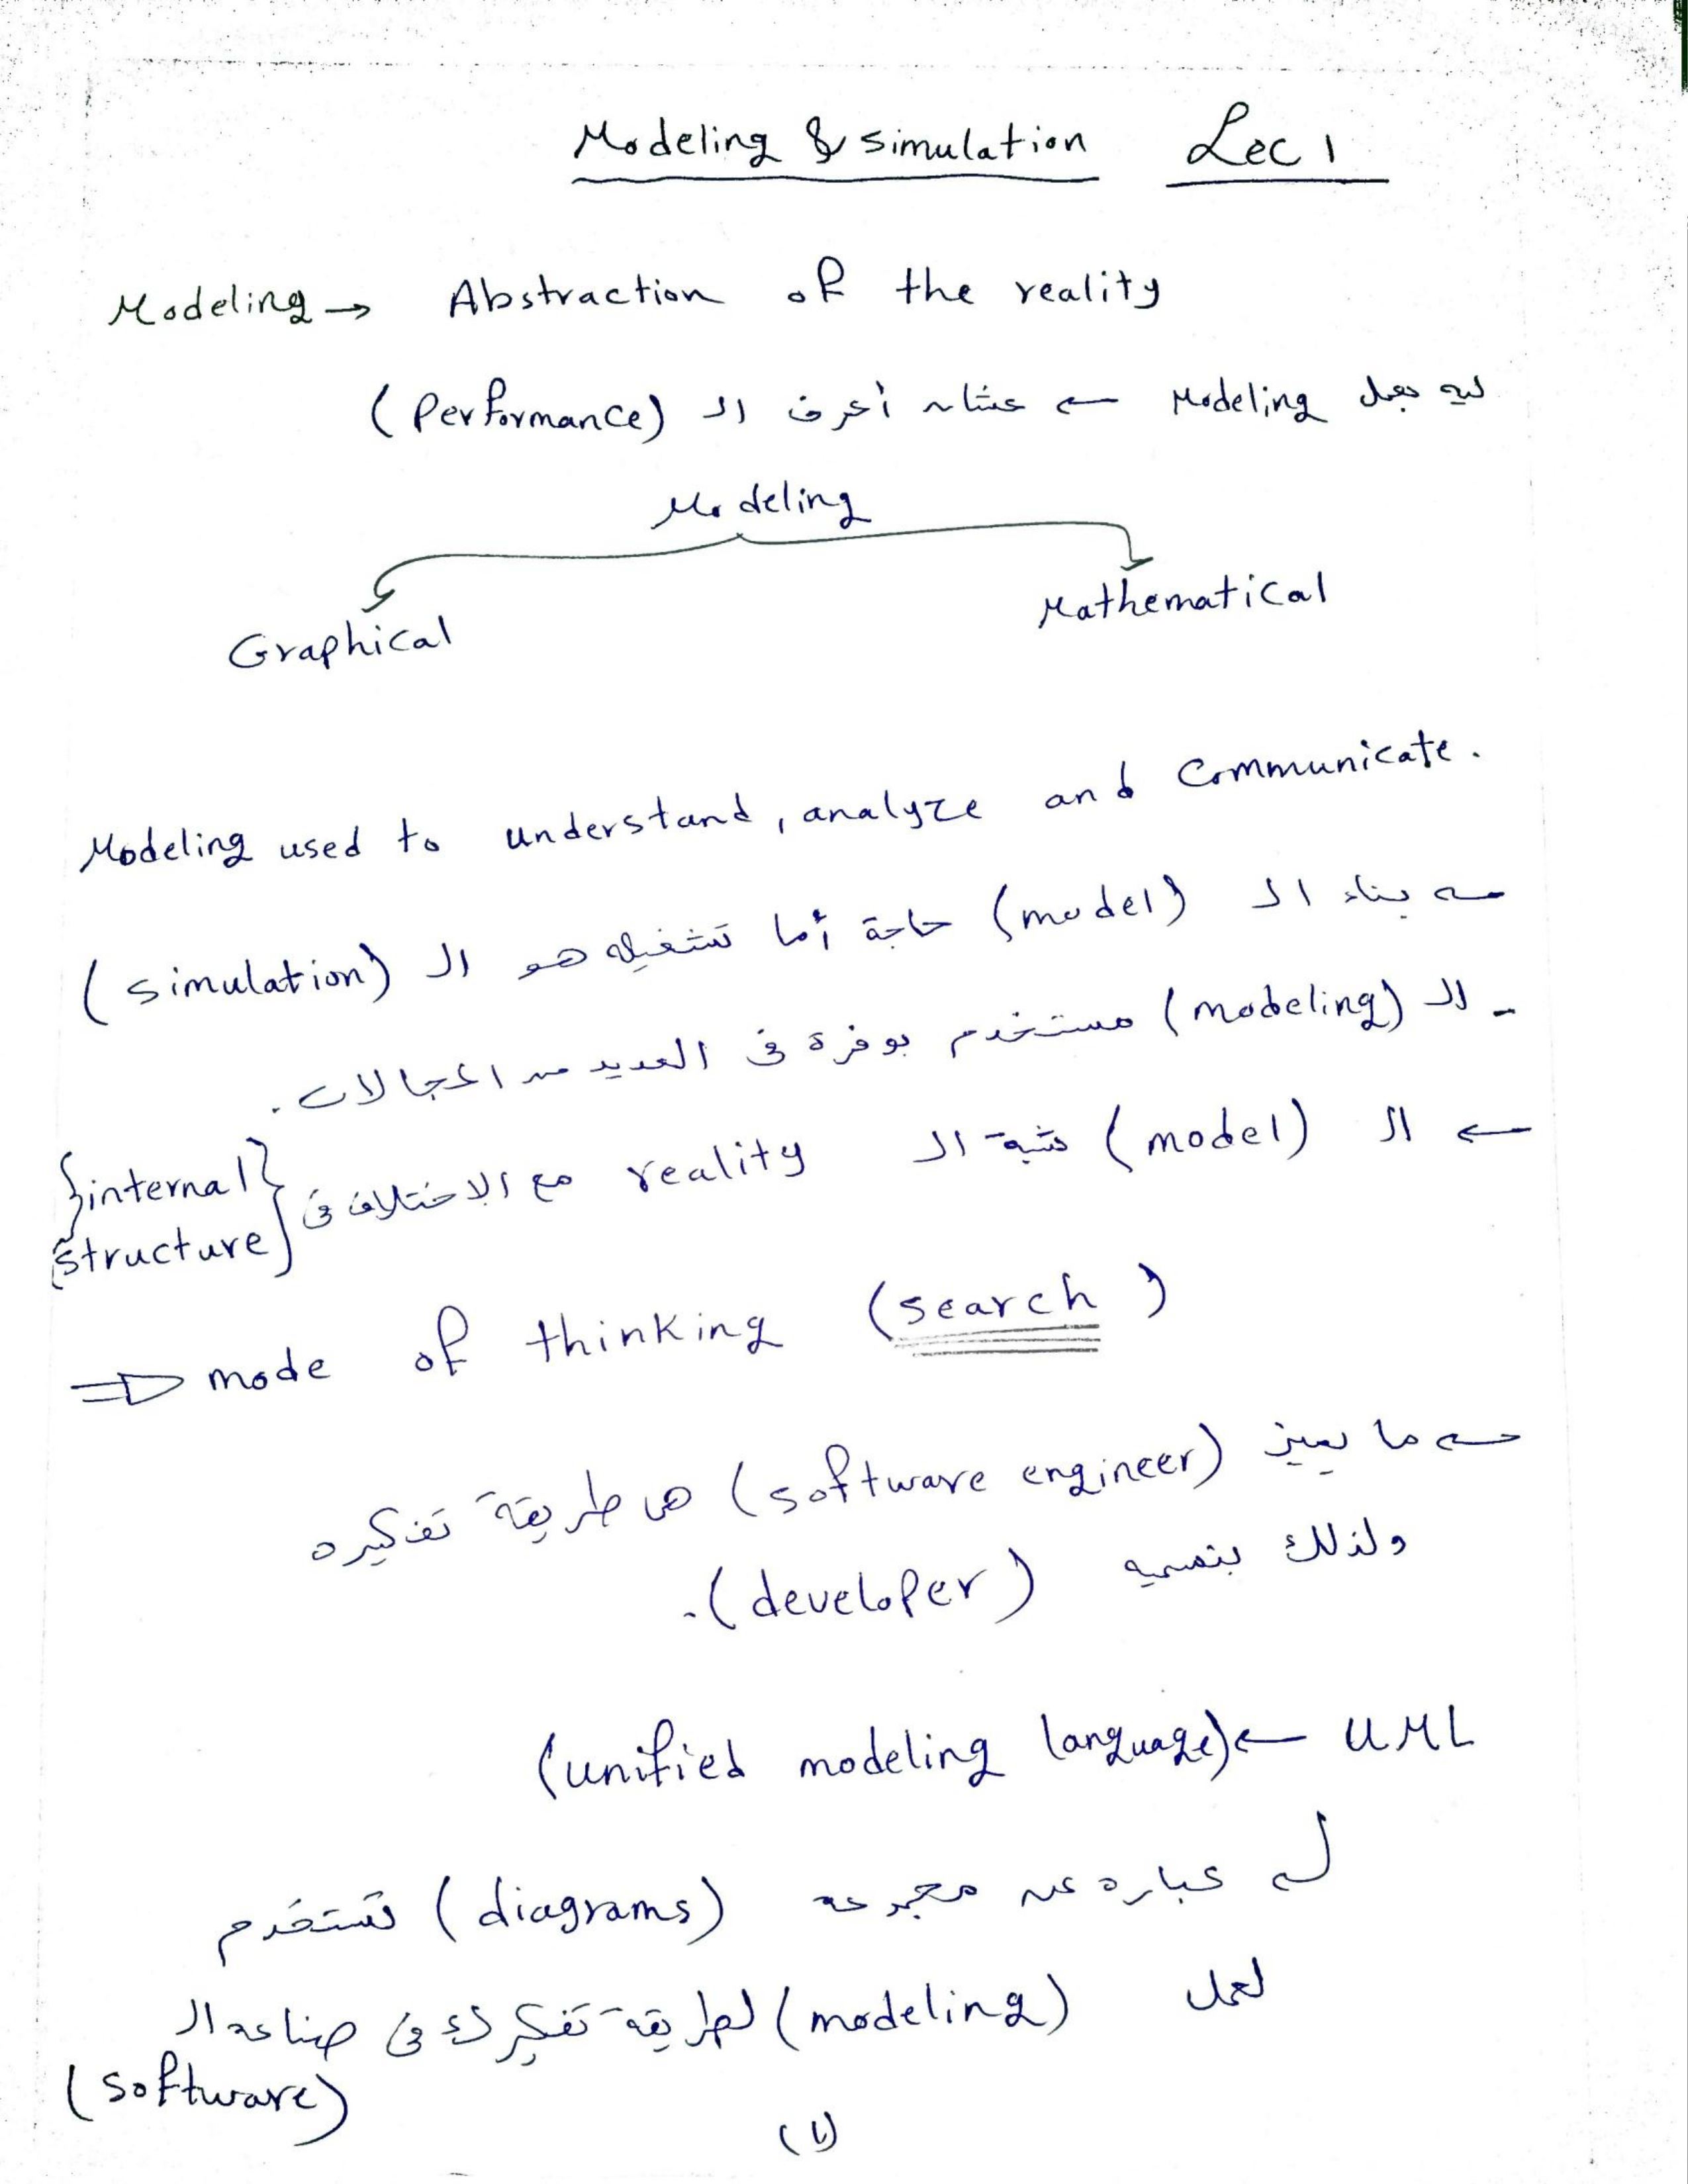 Modeling & simulation Lec 1
Modeling → Abstraction of the reality
ليه بعمل Modeling ← عشان أعرف الـ (Performance)
Modeling
Graphical Mathematical
Modeling used to understand, analyze and Communicate.
← بناء الـ (model) حاجة أما تشغيله هو الـ (simulation)
- الـ (modeling) مستخدم بوفرة فى العديد من المجالات.
← الـ (model) شبة الـ reality مع الاختلاف فى {internal structure}
⇒ mode of thinking (search)
← ما يميز (software engineer) هى طريقة تفكيره
ولذلك بنسميه (developer).
UML ← (unified modeling language)
عباره عن مجموعه (diagrams) تستخدم
لعمل (modeling) لطريقة تفكيرك فى صناعه الـ
(software)
(١)